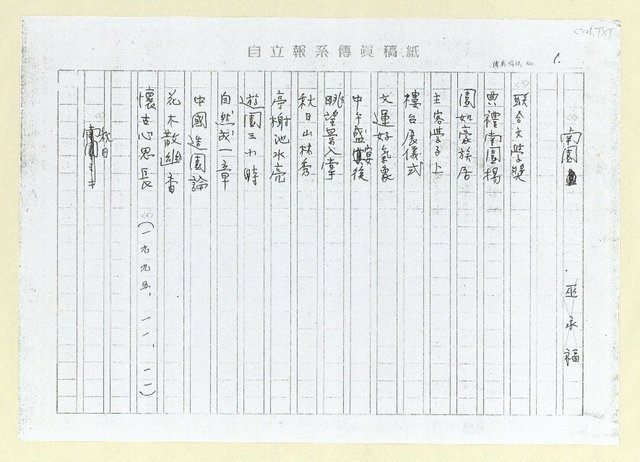 cod.TXT
自立報系傳眞稿紙
傳眞編號 No. 1.
南園
巫永福
聯合文學獎
典禮南園揚
園如豪族居
主客學子上
樓台展儀式
文運好氣象
中午盛宴後
眺望景入掌
秋日山林秀
亭榭池水亮
遊園五小時
自然成一章
中國造園論
花木散幽香
懷古心思長
(一九九五、一一、一一)
秋日
南園